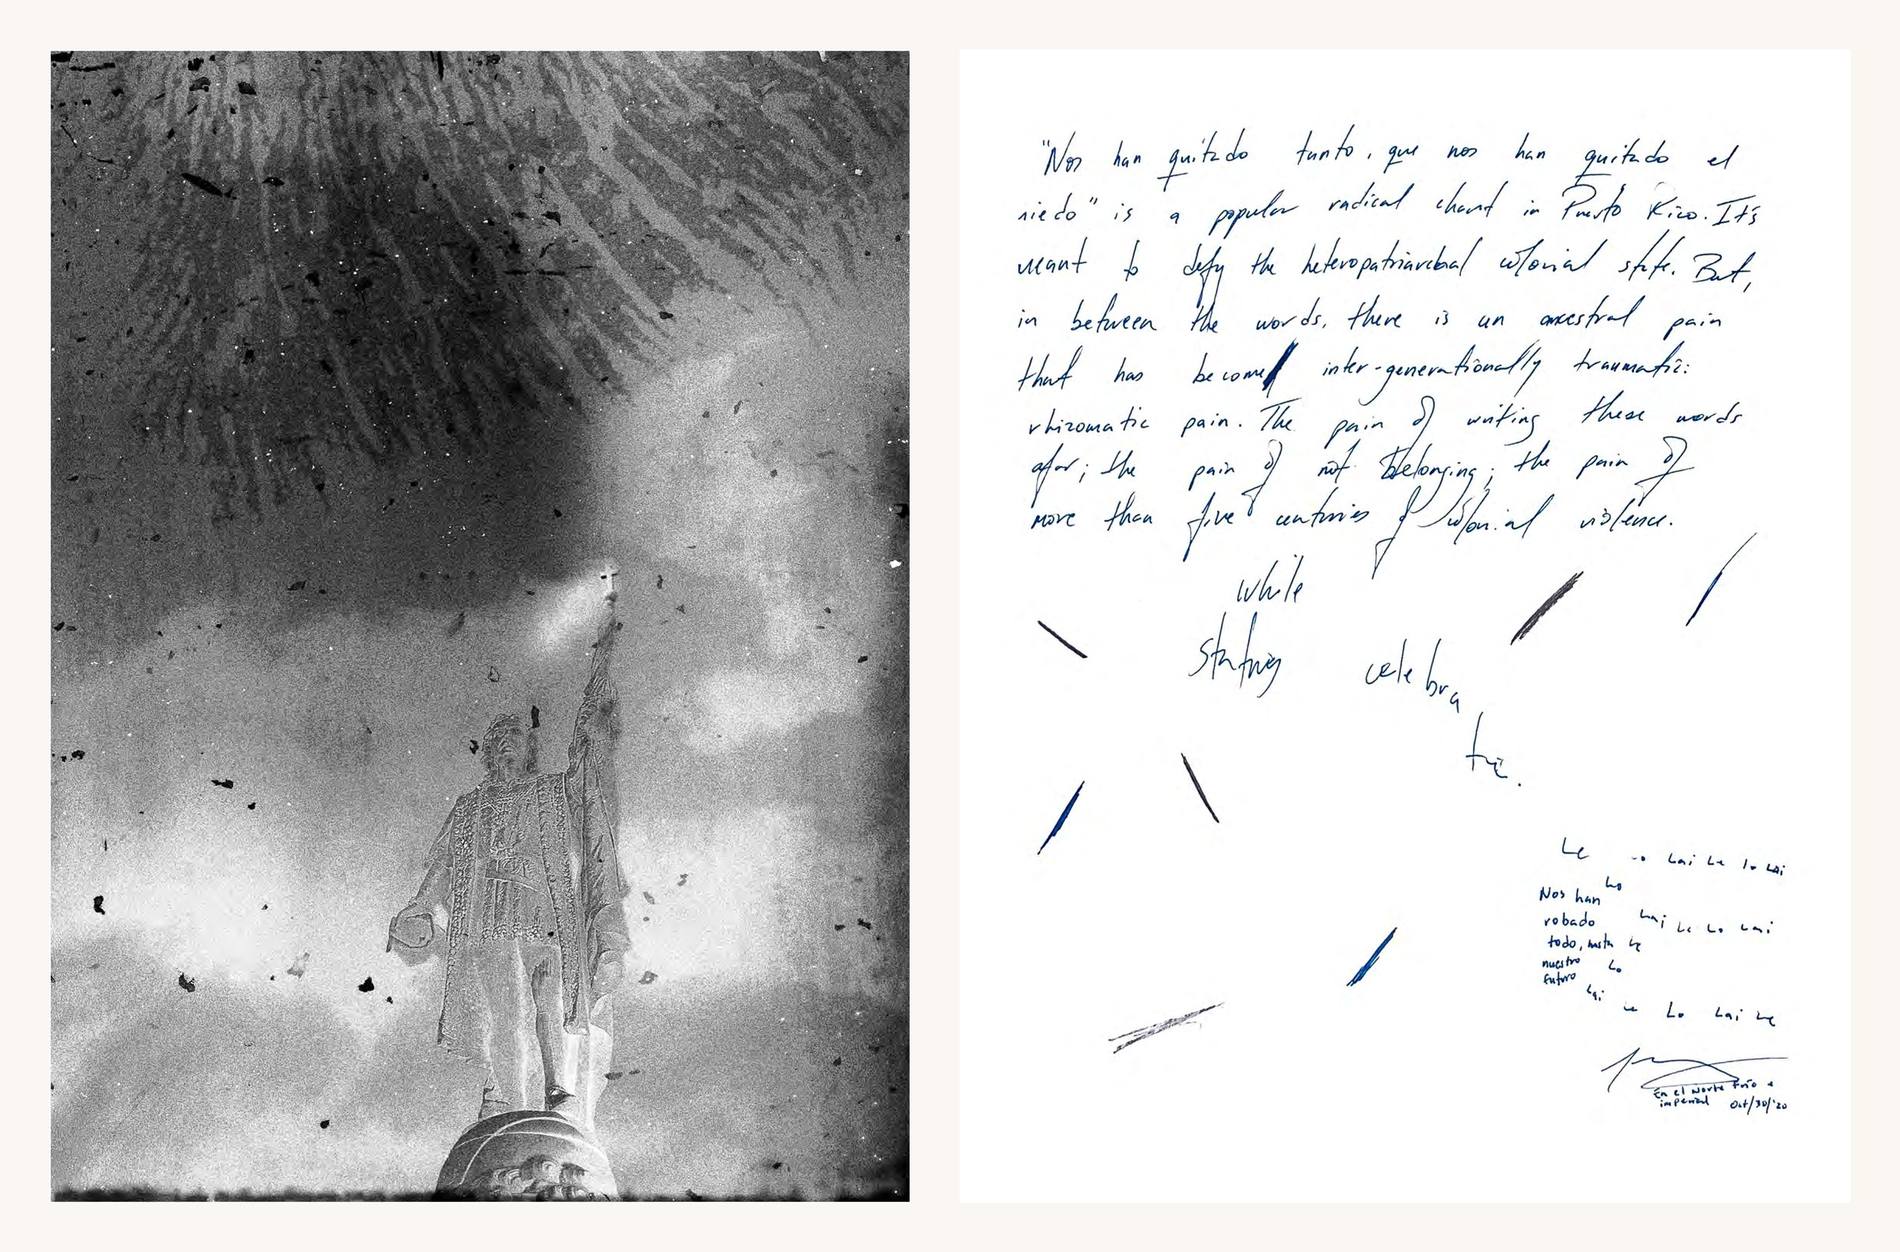 "Nos han quitado tanto, que nos han quitado el
miedo" is a popular radical chant in Puerto Rico. It's
meant to defy the heteropatriarchal colonial state. But,
in between the words, there is an ancestral pain
that has become inter-generationally traumatic:
rhizomatic pain. The pain of writing these words
afar; the pain of not belonging; the pain of
more than five centuries of colonial violence.
while
celebra
te.
Le Lo Lai Le lo Lai
Lo
Nos han
robado
todo, hasta
nuestro
futuro
Lai Le Lo Lai
Le
Lo
Lai
Le Lo Lai Le
En el Norte frío e
imperial Oct/30/'20